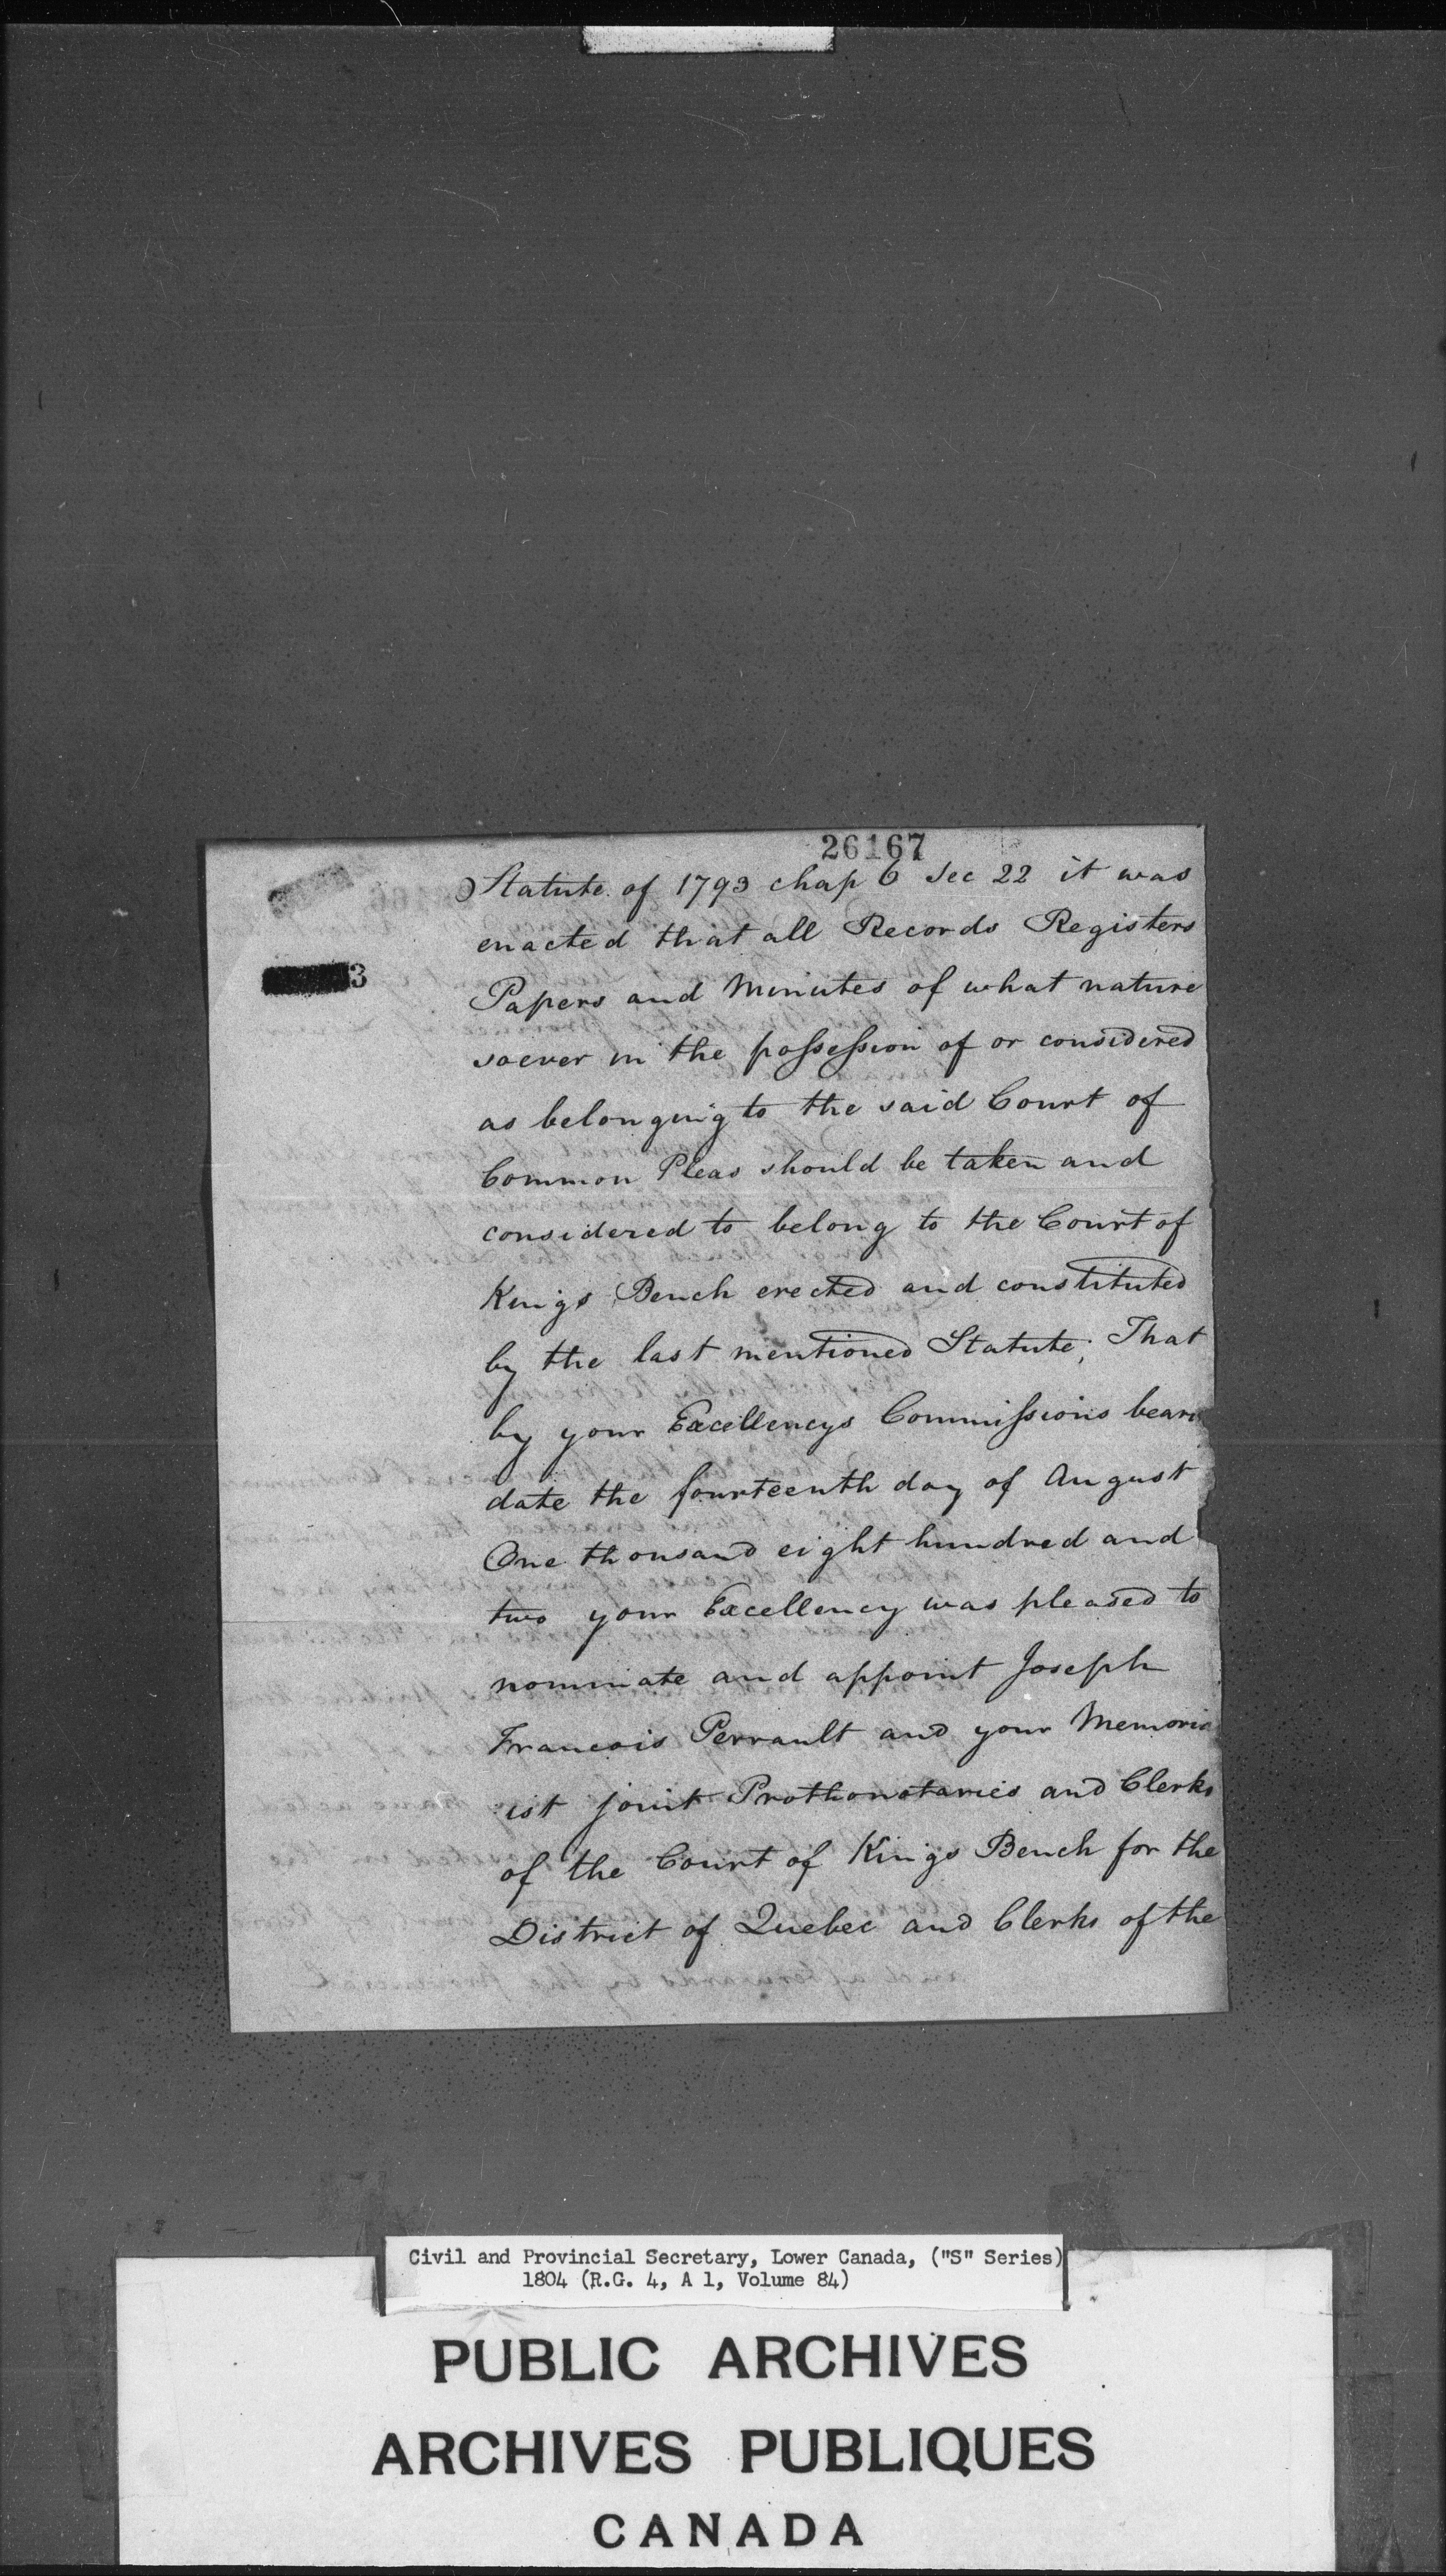 26167
Statute of 1793 chap 6 Sec 22 it was
3
enacted that all Records Registers
Papers and Minutes of what nature
soever in the possession of or considered
as belonging to the said Court of
Common Pleas should be taken and
considered to belong to the Court of
Kings Bench erected and constituted
by the last mentioned Statute; That
by your Excellencys Commissions bearin
date the fourteenth day of August
One thousand eight hundred and
two your Excellency was pleased to
nominate and appoint Joseph
Francois Perrault and your Memoria
ist joint Prothonotaries and Clerks
of the Court of Kings Bench for the
District of Quebec and Clerks of the
Civil and Provincial Secretary, Lower Canada, ("S" Series)
1804 (R.G. 4, A 1, Volume 84)
PUBLIC ARCHIVES
ARCHIVES PUBLIQUES
CANADA